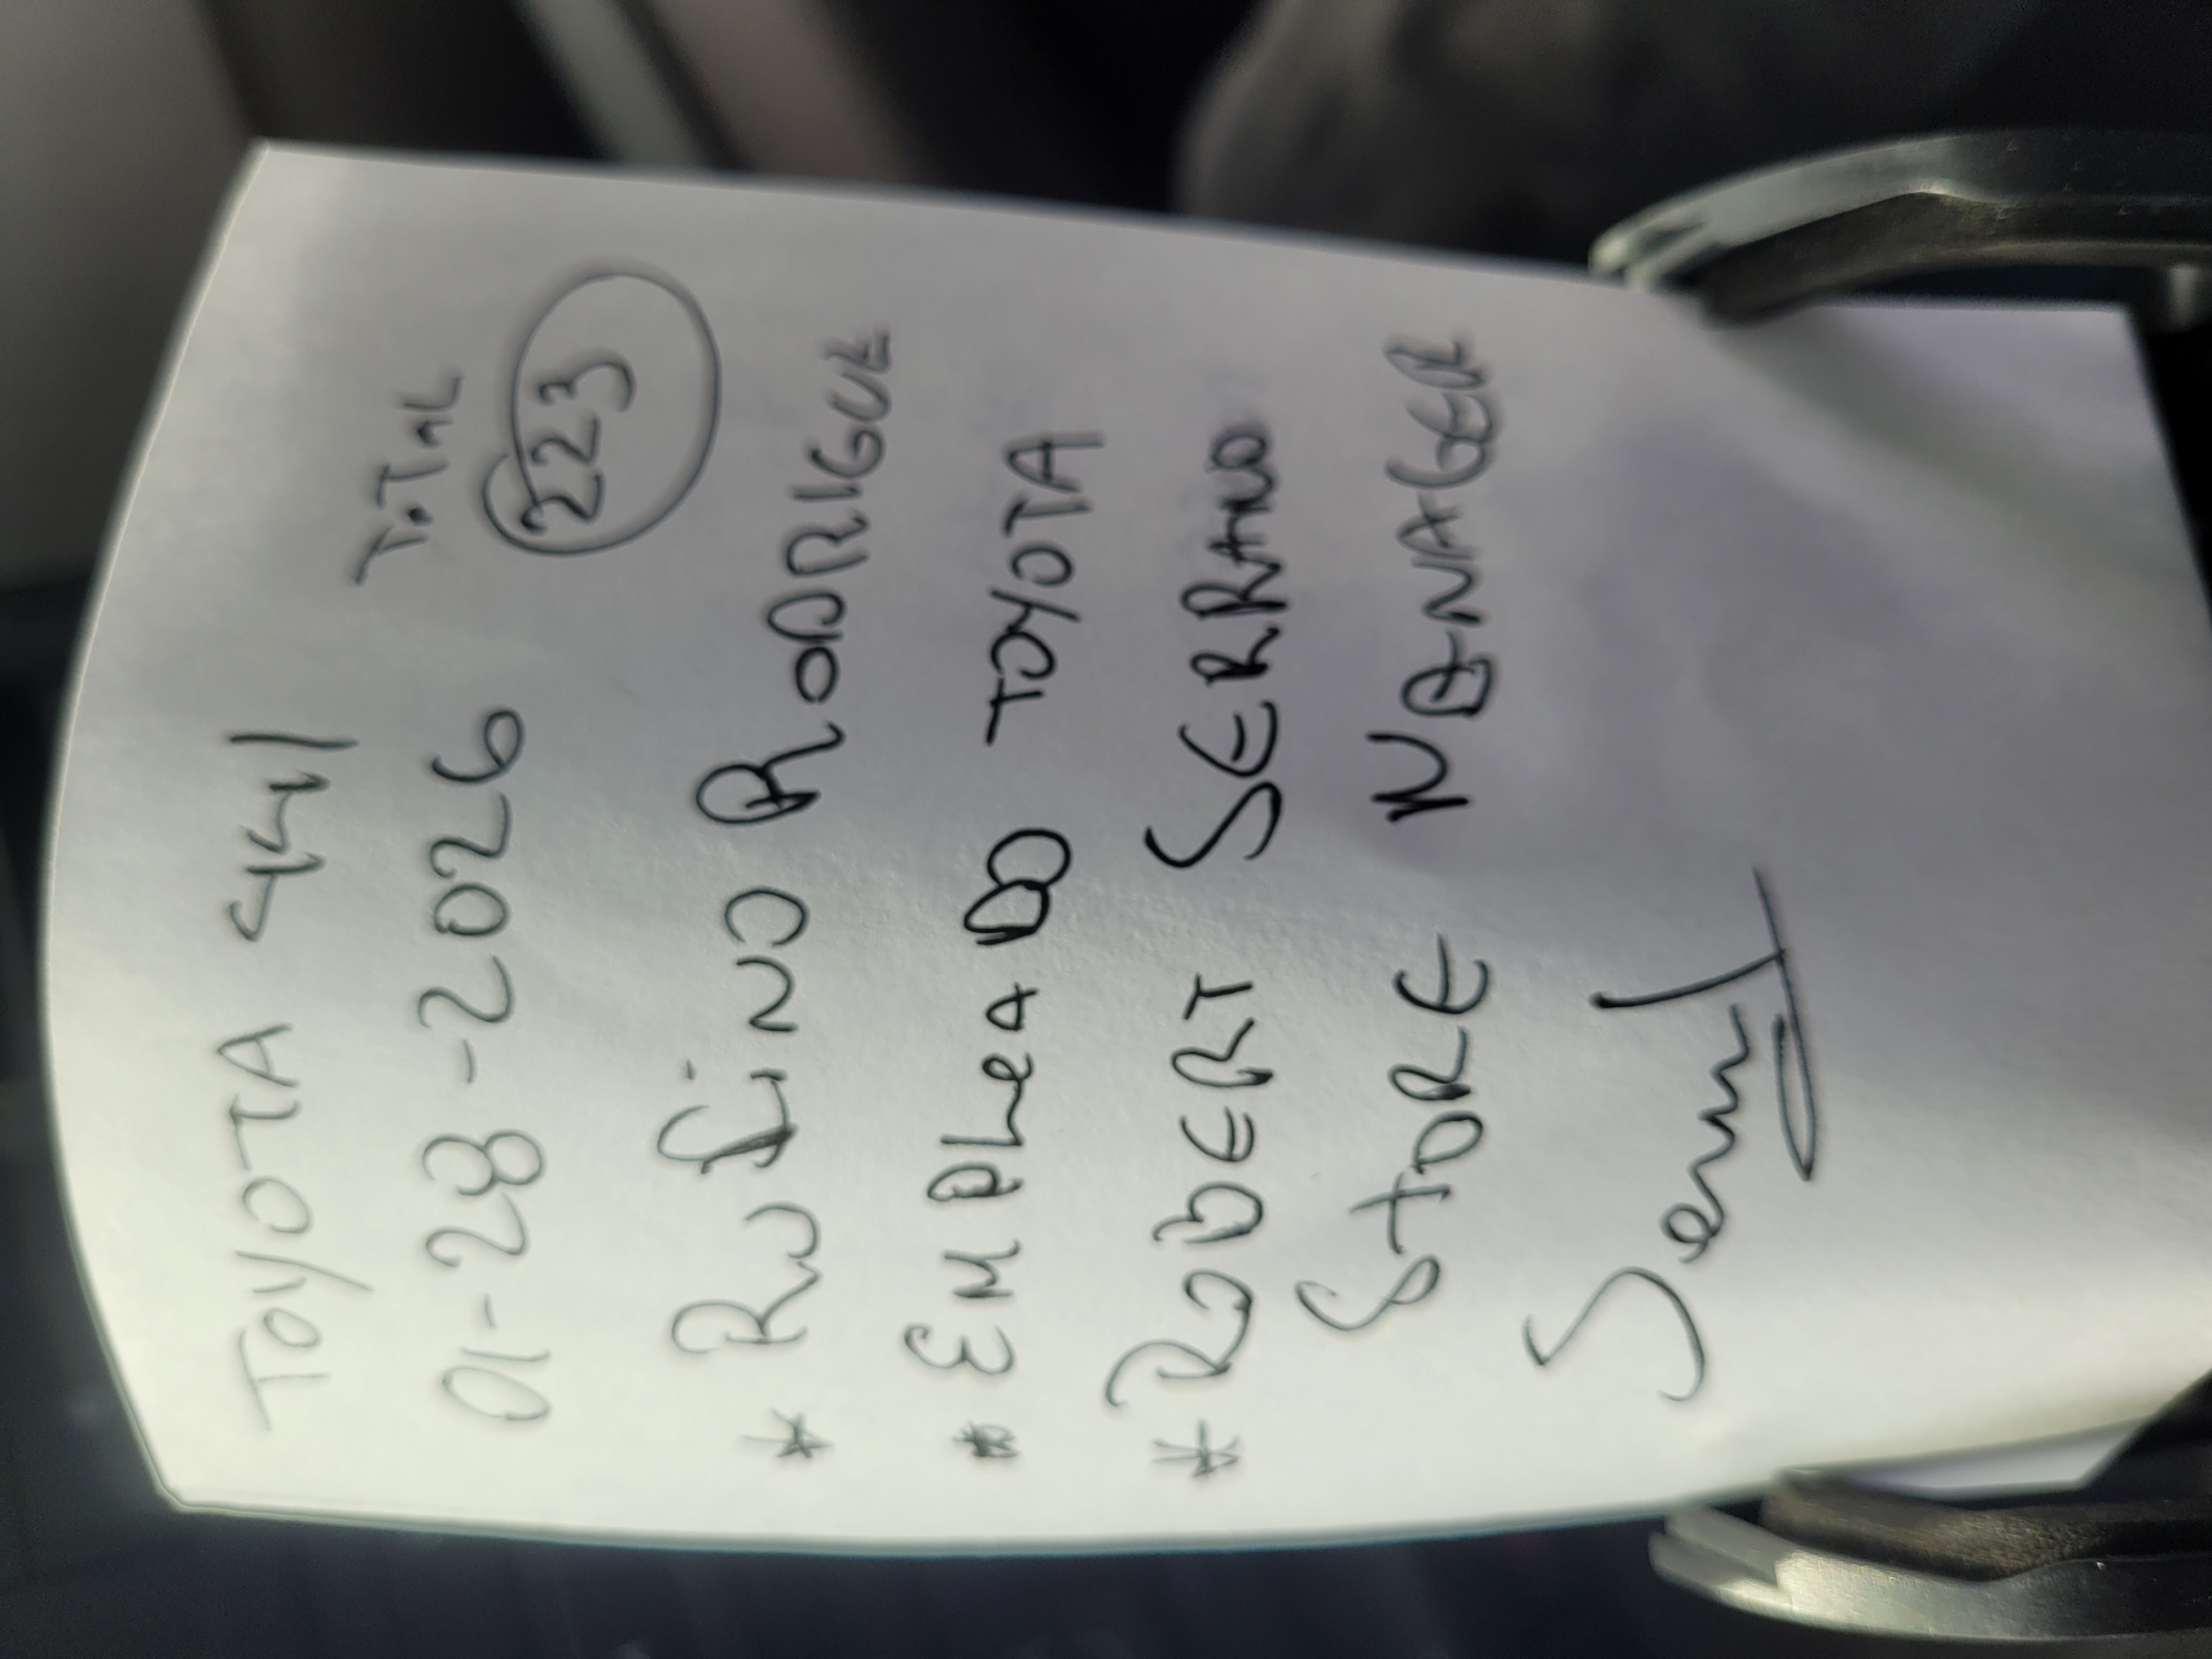 TOYOTA 441
ToTaL
01-28-2026
223
* Rufino RoDRIGUE
* EMpleADO TOYOTA
* RoBERT SERRANO
STORE MANAGER